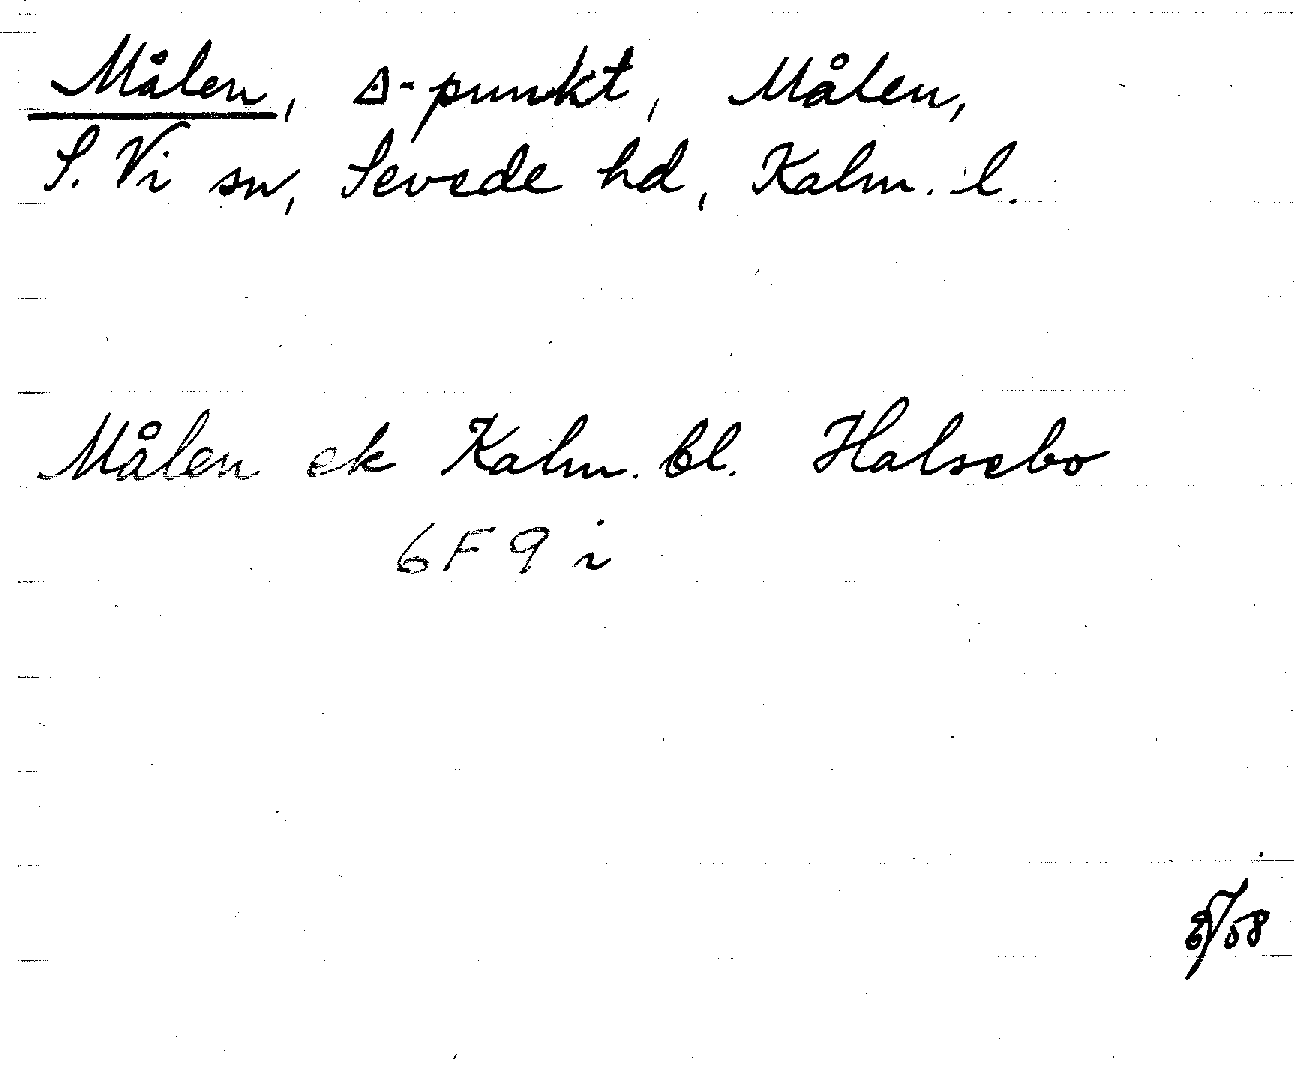 Målen, △-punkt, Målen,
S. Vi sn, Sevede hd, Kalm. l.
Målen ek Kalm. bl. Halsebo
6F 9 i